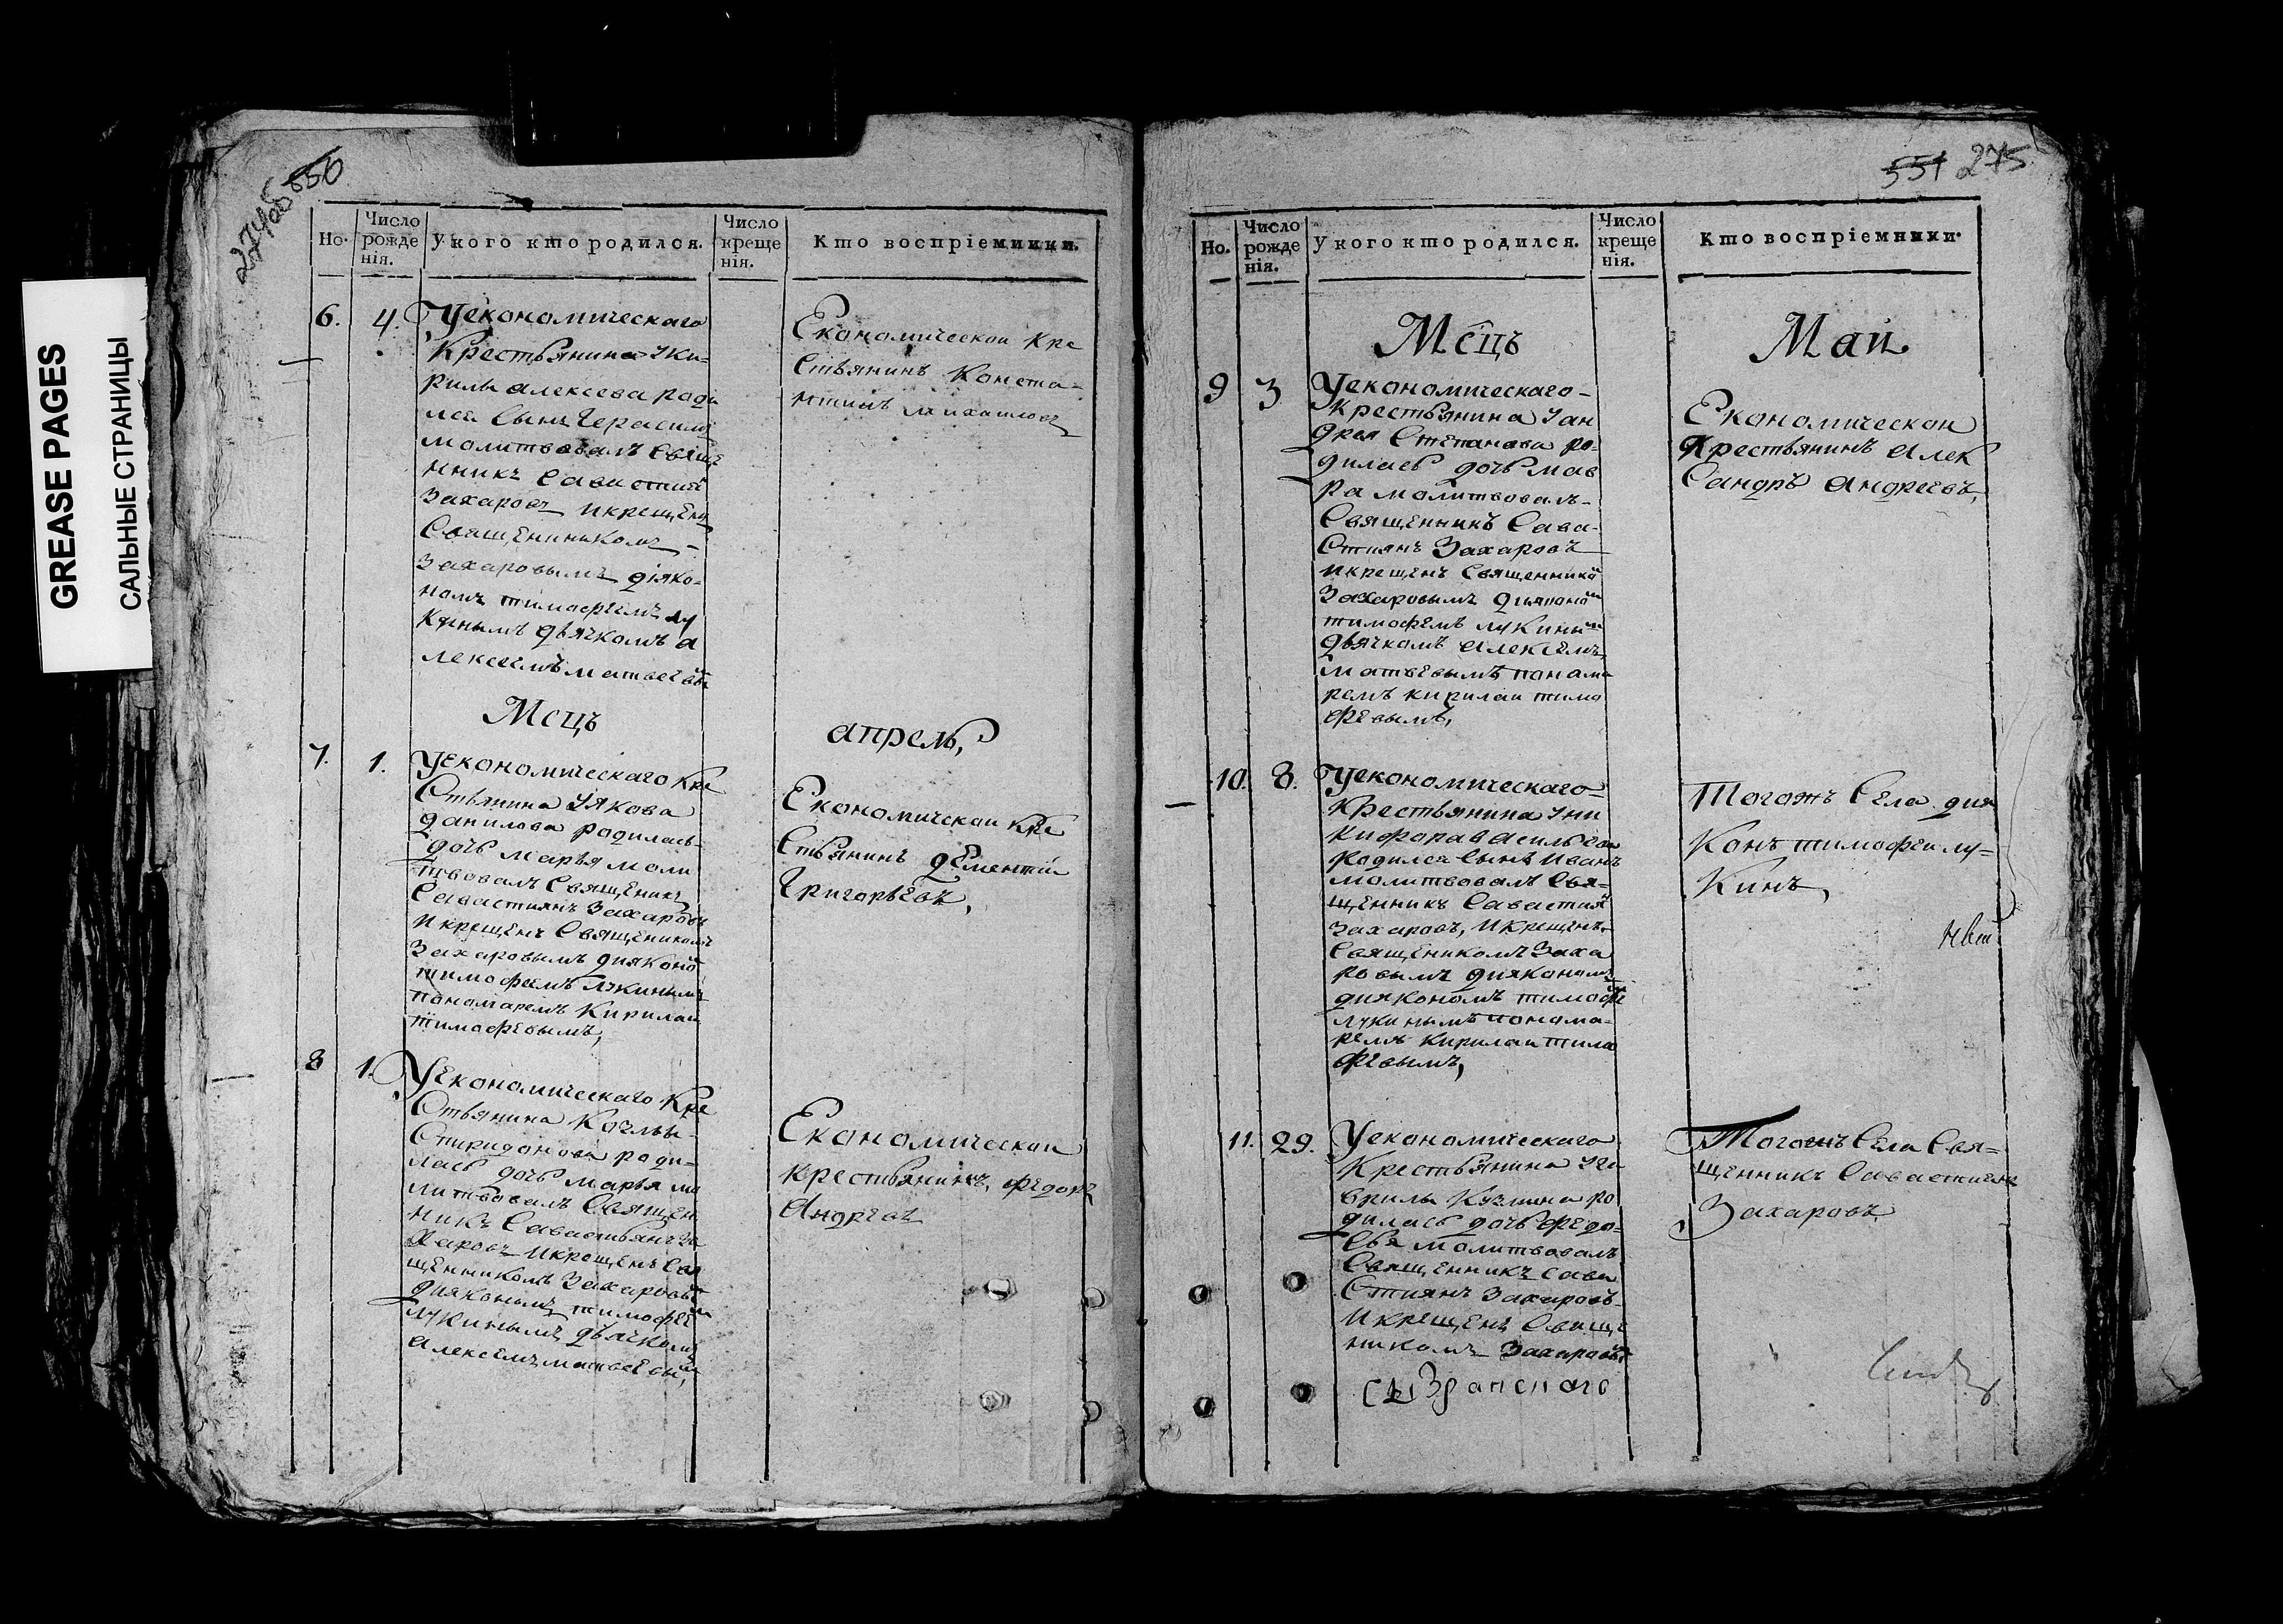 GREASE PAGES
САЛЬНЫЕ СТРАНИЦЫ
274об 550
Но. Число рожденія. У кого кто родился. Число крещенія. Кто воспріемники.
6. 4. Уекономическаго
Крестьянина Уки=
рилы алексева роди
лся Сынъ Герасимъ
молитвовалъ Свяще
нникъ Савастиянъ
Захаровъ икрещенъ
Священникомъ
Захаровымъ діяко=
номъ тимофеемъ лу
Кинымъ дьячкомъ а
лексеемъ матвеевымъ
Економической Кре
СтьянинъКонста=
нтинъ михаиловъ
Мсцъ апрель,
7. 1. Уекономическаго Кре
Стьянина Уякова
данилова родилась
дочь марья моли
твовалъ Священикъ
Савастиянъ Захаровъ
икрещенъ Священикомъ
Захаровымъ дияконом
тимофеемъ лукинымъ
пономаремъ Кирилаи
тимофевымъ,
Економической Кре
Стьянинъ дементій
Григорьевъ,
8 1. Уекономическаго Кре
Стьянина Козмы
Спиридонова роди=
лась дочь марья мо
литвовалъ Священ
никъ Савастьянъ За
Харовъ икрещенъ Свя
щенникомъ Захаровым
дияконымъ тимофеем
лукинымъ дьячкомъ
алексеемъ матвеевым,
Економической
крестьянинъ федоръ
Андреевъ
551 275
Но. Число рожденія. У кого кто родился. Число крещенія. Кто воспріемники.
Мсцъ Маи
9 3 Уекономическаго=
крестьянина Уан
дрея Степанова ро=
дилась дочь мав
ра молитвовалъ
Священникъ Сава=
Стиянъ Захаровъ
икрещенъ Священником
Захаровымъ дьяконом
тимофемъ лукиным
дьячкомъ алексемъ
матвевымъ понома
ремъ кирилаи тимо
февымъ,
Економической
Крестьянинъ Алек
Сандръ Андреевъ,
10. 8. Уекономическаго=
Крестьянина Уни
кифора васильева
родился Сынъ Иванъ
молитвовалъ Свя=
щенникъ Савастиян
Захаровъ, Икрещенъ
Священикомъ Заха
ровымъ дияконом
дияконом тимофе
лукинымъ понома=
ремъ кирилаи тимо
февымъ,
Тогожъ Села дия
Конъ тимофеи лу=
Кинъ,
11. 29. Уекономическаго
Крестьянина Уга
врилы Кузмина ро
дилась дочь федо=
сья молитвовалъ
Священникъ Сава
Стиянъ Захаровъ
Икрещенъ Свяще
никомъ Захаровым
Тогожъ Села Свя=
щенникъ Савастиянъ
Захаровъ
сызранскаго